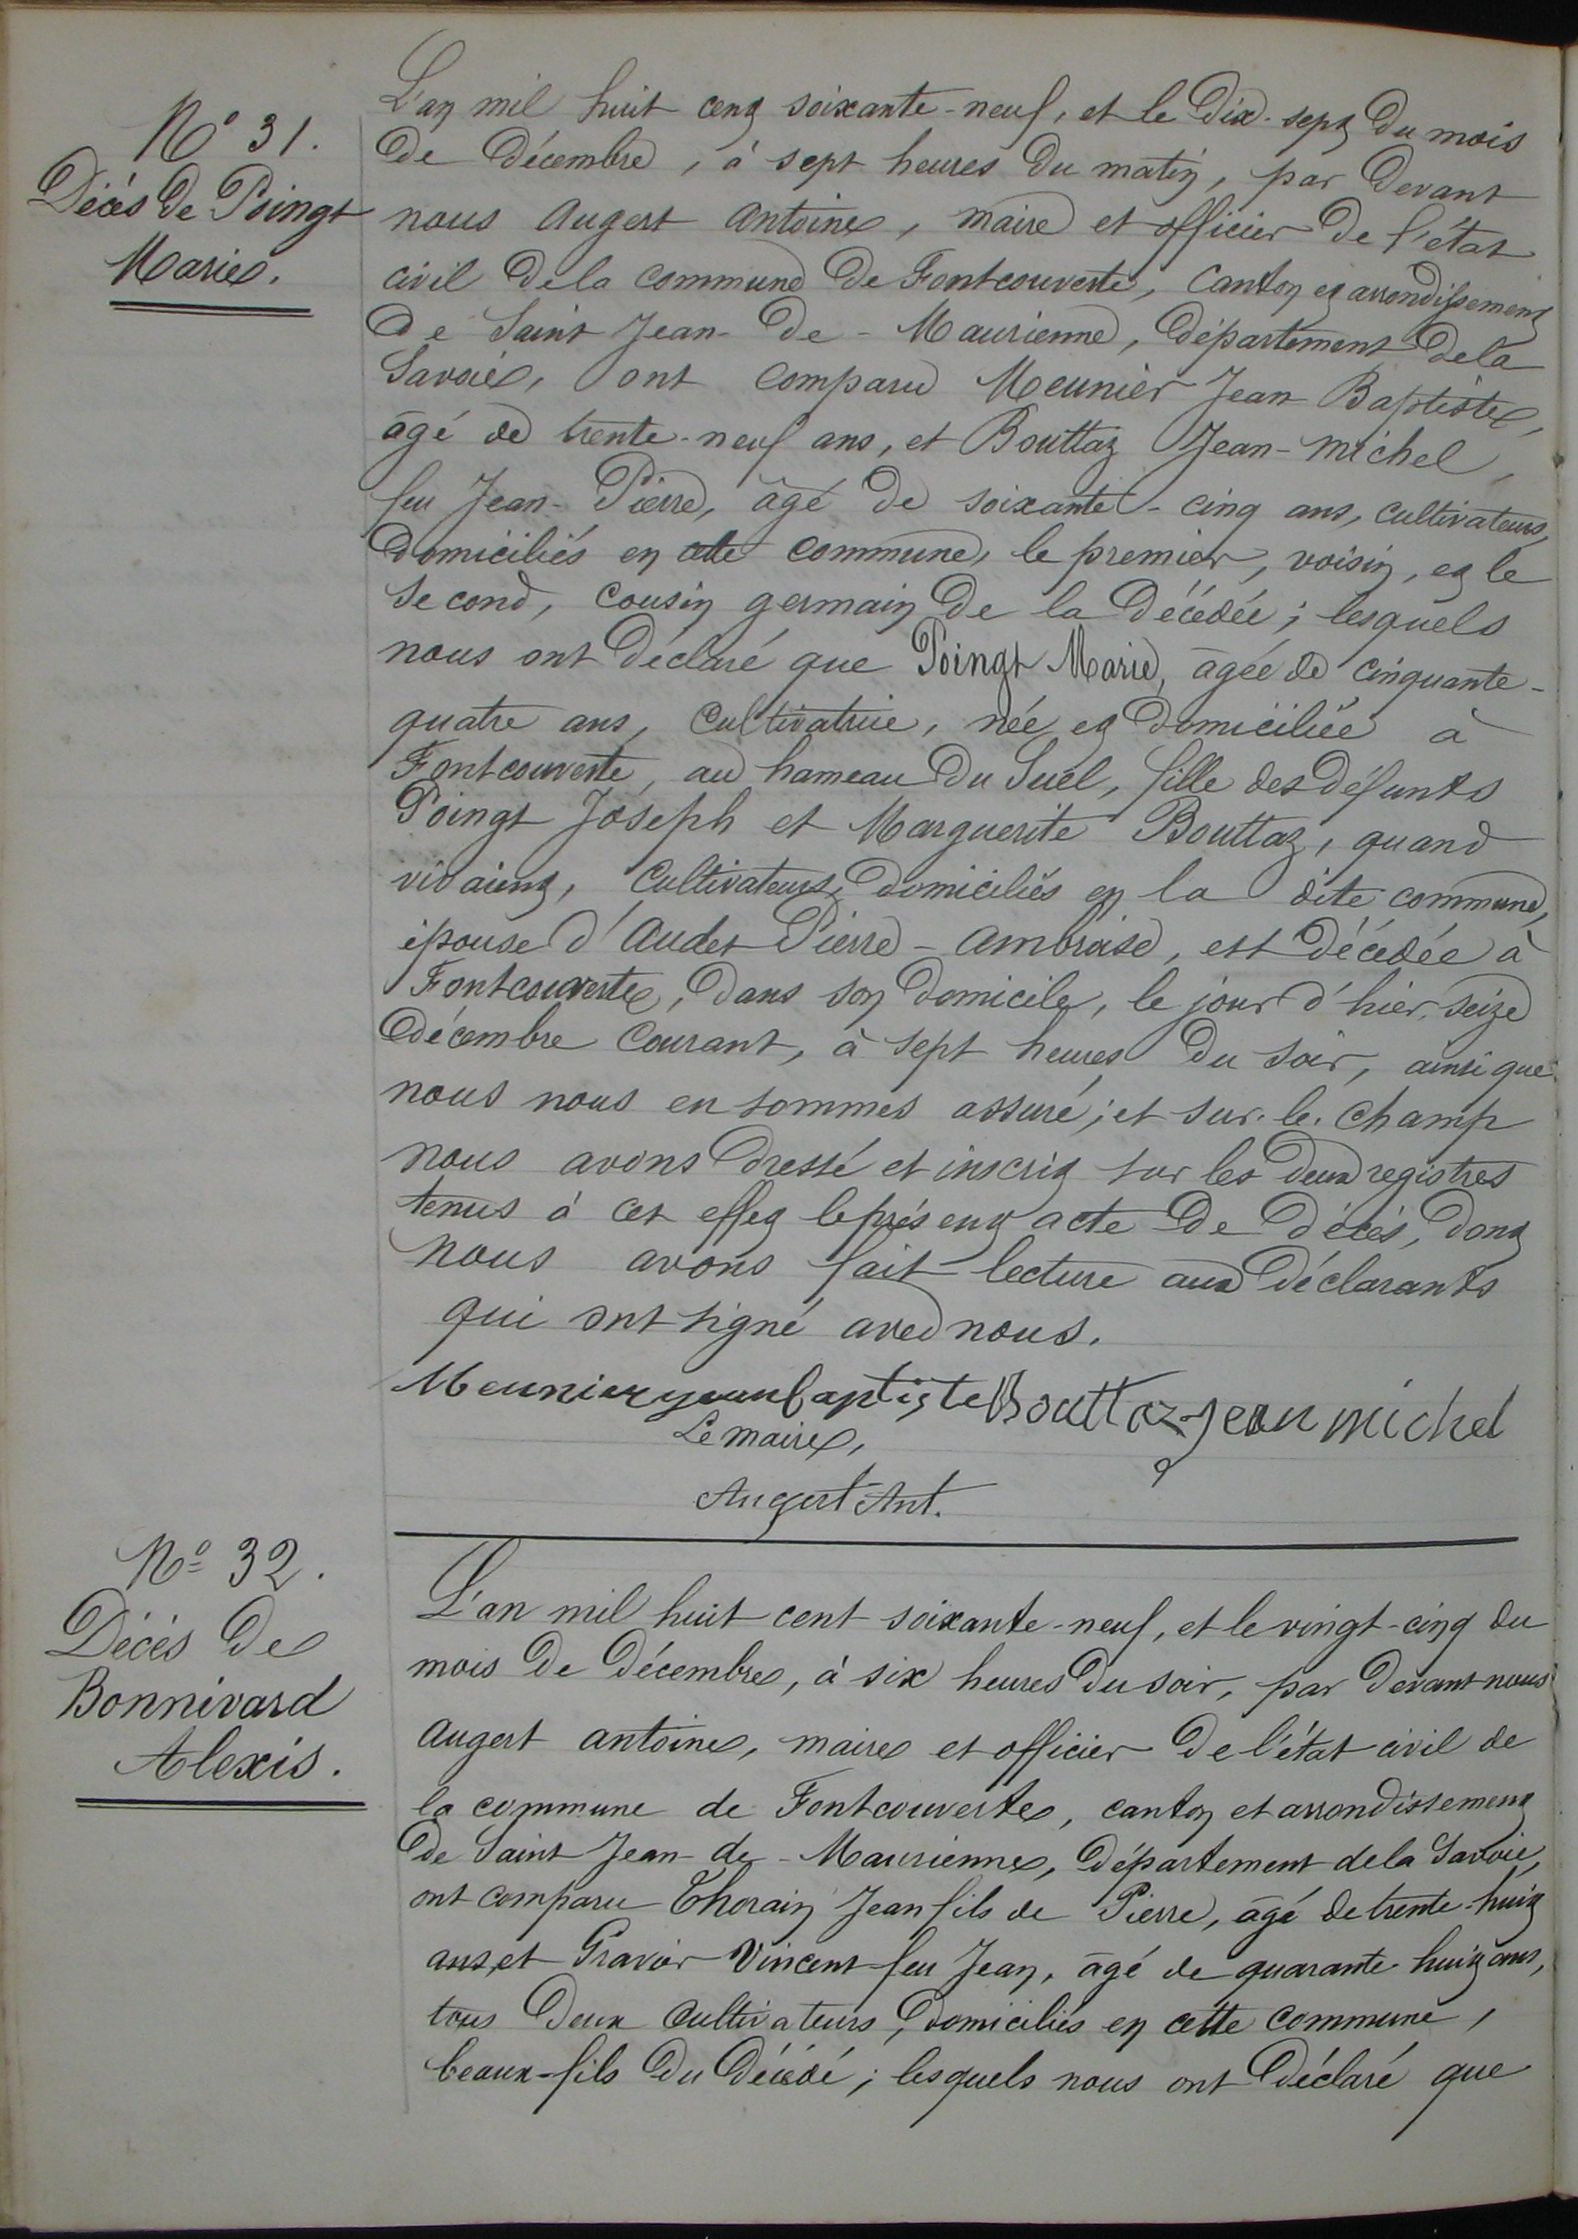 N° 31.
Décès de Poingt
Marie.
L'an mil huit cent soixante-neuf, et le dix-sept du mois
de décembre, à sept heures du matin, par devant
nous Augert Antoine, maire et officier de l'état
civil de la commune de Fontcouverte, canton et arrondissement
de Saint Jean-de-Maurienne, département de la
Savoie, ont comparu Meunier Jean Baptiste,
âgé de trente-neuf ans, et Bouttaz Jean-Michel,
feu Jean-Pierre, âgé de soixante-cinq ans, cultivateurs,
domiciliés en cette commune, le premier, voisin, et le
second, cousin germain de la décédée; lesquels
nous ont déclaré que Poingt Marie, âgée de cinquante-
quatre ans, cultivatrice, née et domiciliée à
Fontcouverte, au hameau du Suel, fille des défunts
Poingt Joseph et Marguerite Bouttaz, quand
vivaient, cultivateurs, domiciliés en la dite commune,
épouse d'Audet Pierre-Ambroise, est décédée à
Fontcouverte, dans son domicile, le jour d'hier, seize
décembre courant, à sept heures du soir, ainsi que
nous nous en sommes assuré; et sur-le-champ
nous avons dressé et inscrit sur les deux registres
tenus à cet effet le présent acte de décès, dont
nous avons fait lecture aux déclarants
qui ont signé avec nous.
Meunier jean baptiste Bouttaz jean michel
Le maire,
Augert Ant.
N° 32.
Décès de
Bonnivard
Alexis.
L'an mil huit cent soixante-neuf, et le vingt-cinq du
mois de décembre, à six heures du soir, par devant nous
Augert Antoine, maire et officier de l'état civil de
la commune de Fontcouverte, canton et arrondissement
de Saint Jean-de-Maurienne, département de la Savoie,
ont comparu Thorain Jean fils de Pierre, âgé de trente-huit
ans, et Gravier Vincent feu Jean, âgé de quarante-huit ans,
tous deux cultivateurs, domiciliés en cette commune,
beaux-fils du décédé; lesquels nous ont déclaré que